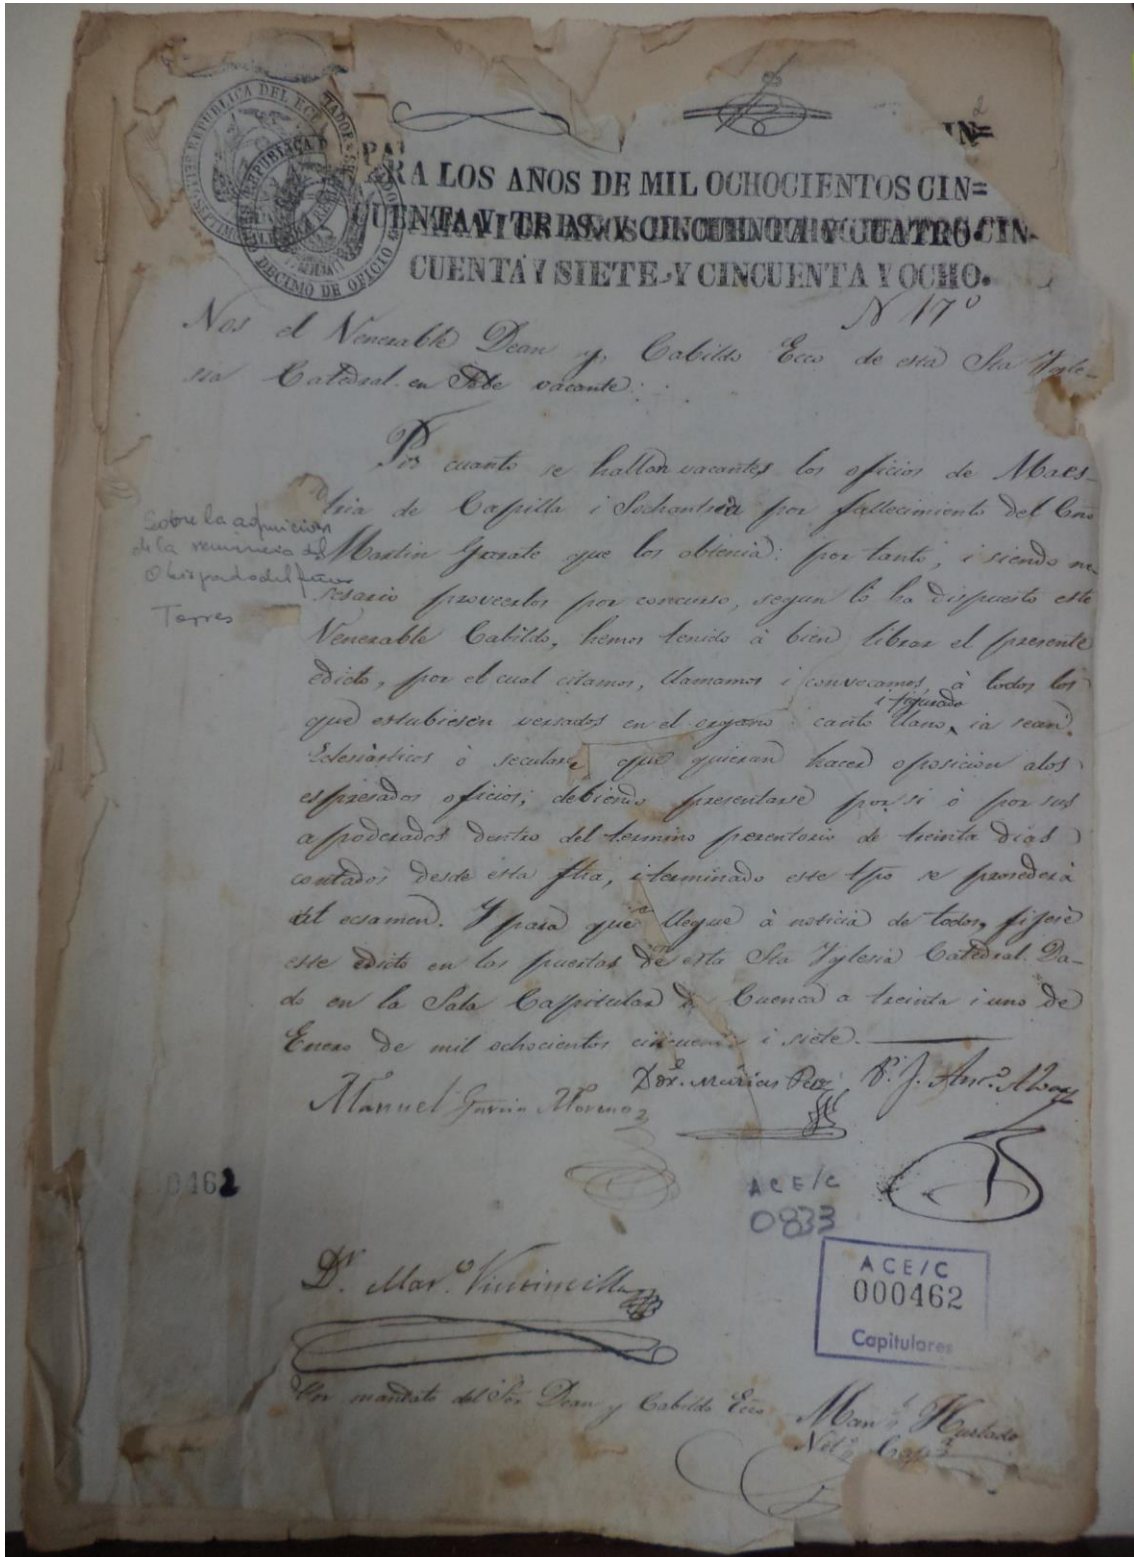 REPUBLICA DEL ECUADOR
DECIMO DE OFICIO
PARA LOS AÑOS DE MIL OCHOCIENTOS CIN=
CUENTA Y TRES Y CINCUENTA Y CUATRO CIN-
CUENTA Y SIETE Y CINCUENTA Y OCHO.
N 17º
Nos el Venerable Dean y Cabildo Ecco de esta Sta Ygle-
sia Catedral en Sede vacante:
Por cuanto se hallan vacantes los oficios de Maes-
tria de Capilla i Sochantria por fallecimiento del
Martin Garate que los obtenia: por tanto, i siendo ne-
sesario proveerlos por concurso, segun lo ha dispuesto este
Venerable Cabildo, hemos tenido à bien librar el presente
edicto, por el cual citamos, llamamos i convocamos à todos los
i figurado
que estubiesen versados en el organo i canto llano, ia sean
Eclesiàsticos ò seculares que quieran hacer oposicion alos
espresados oficios; debiendo presentarse por si ò por sus
apoderados dentro del termino perentorio de treinta dias
contados desde esta fha, i terminado este tpo se prosederà
al ecsamen. Y para que llegue à noticia de todos, fijese
este edicto en las puertas de esta Sta Yglesia Catedral. Da-
do en la Sala Capitular de Cuenca a treinta i uno de
Enero de mil ochocientos cincuenta i siete.
Sobre la
de la renuncia del
Obispado del Señor
Torres
Manuel Garcia Moreno
0462
ACE/C
0833
ACE/C
000462
Capitulares
Dr. Mar.º Vintimilla
Por mandato del Sor Dean y Cabildo Ecco
Man.l Hurtado